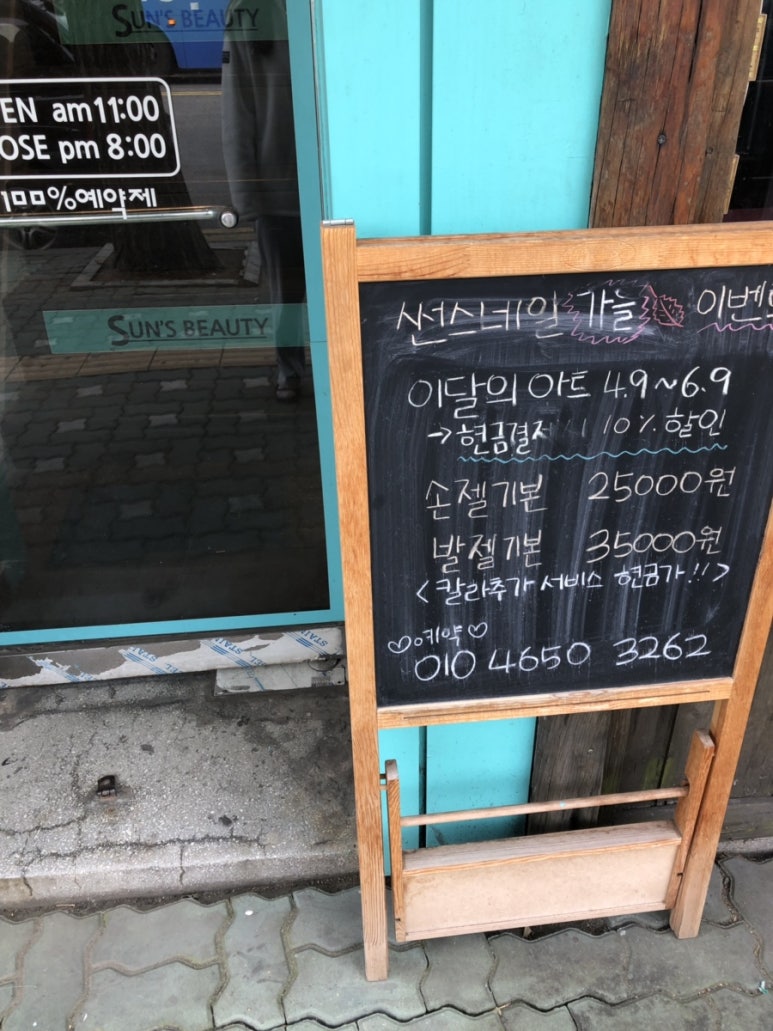 SUN'S BEAUTY
EN am 11:00
OSE pm 8:00
100%예약제
SUN'S BEAUTY
썬스네일 가늘 이벤
이달의 아트 4.9~6.9
→현금결제 10% 할인
손젤기본 25000원
발젤기본 35000원
<칼라추가 서비스 현금가!!>
♡예약♡
010 4650 3262